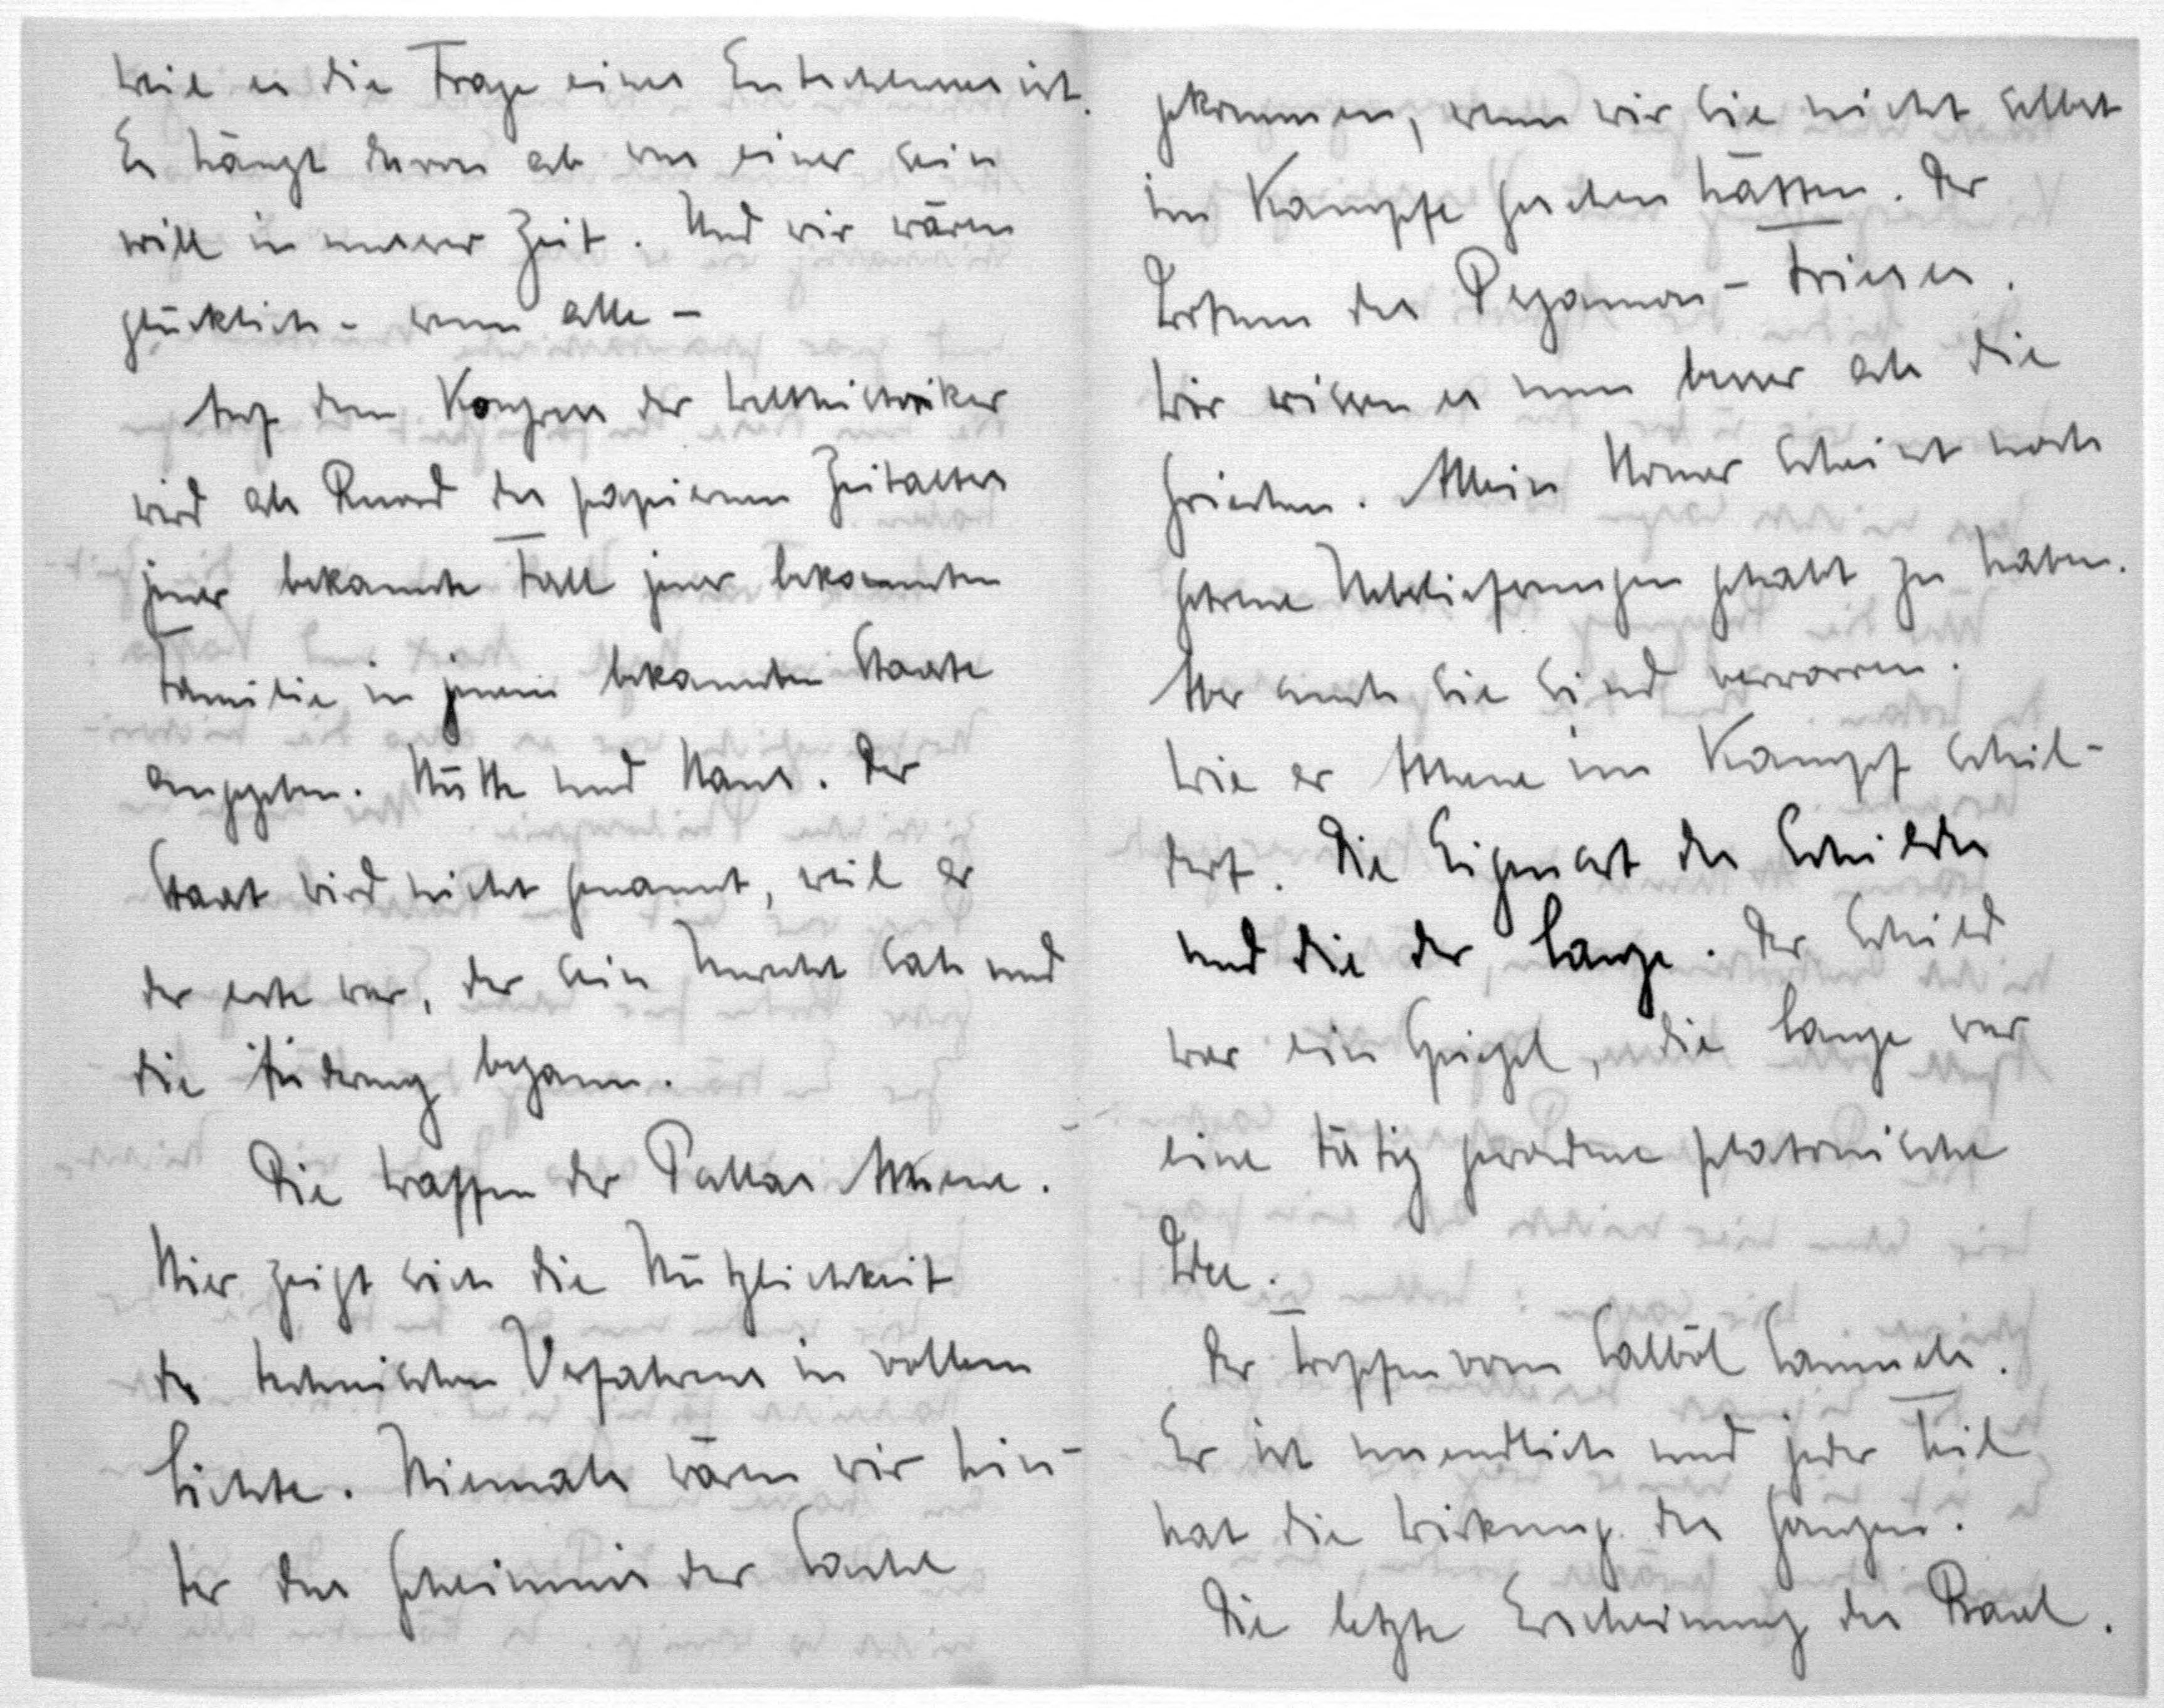 weil es die Frage eines Entschlusses ist.
Es hängt davon ab was einer sein
will in unserer Zeit. Und wir wären
glücklich - wenn alle -
Auf dem Kongress der Welthistoriker
wird als Rekord des papiernen Zeitalters
jener bekannte Fall jener bekannten
Familie in jenem bekannten Staate
angegeben. Hütte und Haus. Der
Staat wird nicht genannt, weil er
der erste war, der sein Unrecht sah und
die Änderung begann.
Die Waffen der Pallas Athene.
Hier zeigt sich die Nützlichkeit
des technischen Verfahrens in vollem
Lichte. Niemals wären wir hin-
ter das Geheimnis der Sache
gekommen, wenn wir sie nicht selbst
im Kampfe gesehen hätten. Der
Irrtum des Pegamon-Frieses.
Wir wissen es nun besser als die
Griechen. Allein Homer scheint noch
getreue Ueberlieferungen gehabt zu haben.
Aber auch sie sind verworren.
Wie er Athene im Kampf schil-
dert. Die Eigenart des Schildes
und die der Lanze. Der Schild
war ein Spiegel, die Lanze war
eine tätig gewordene platonische
Idee.
Der Tropfen vom Salböl Samuels.
Er ist unendlich und jeder Teil
hat die Wirkung des Ganzen.
Die letzte Erscheinung des Baal.